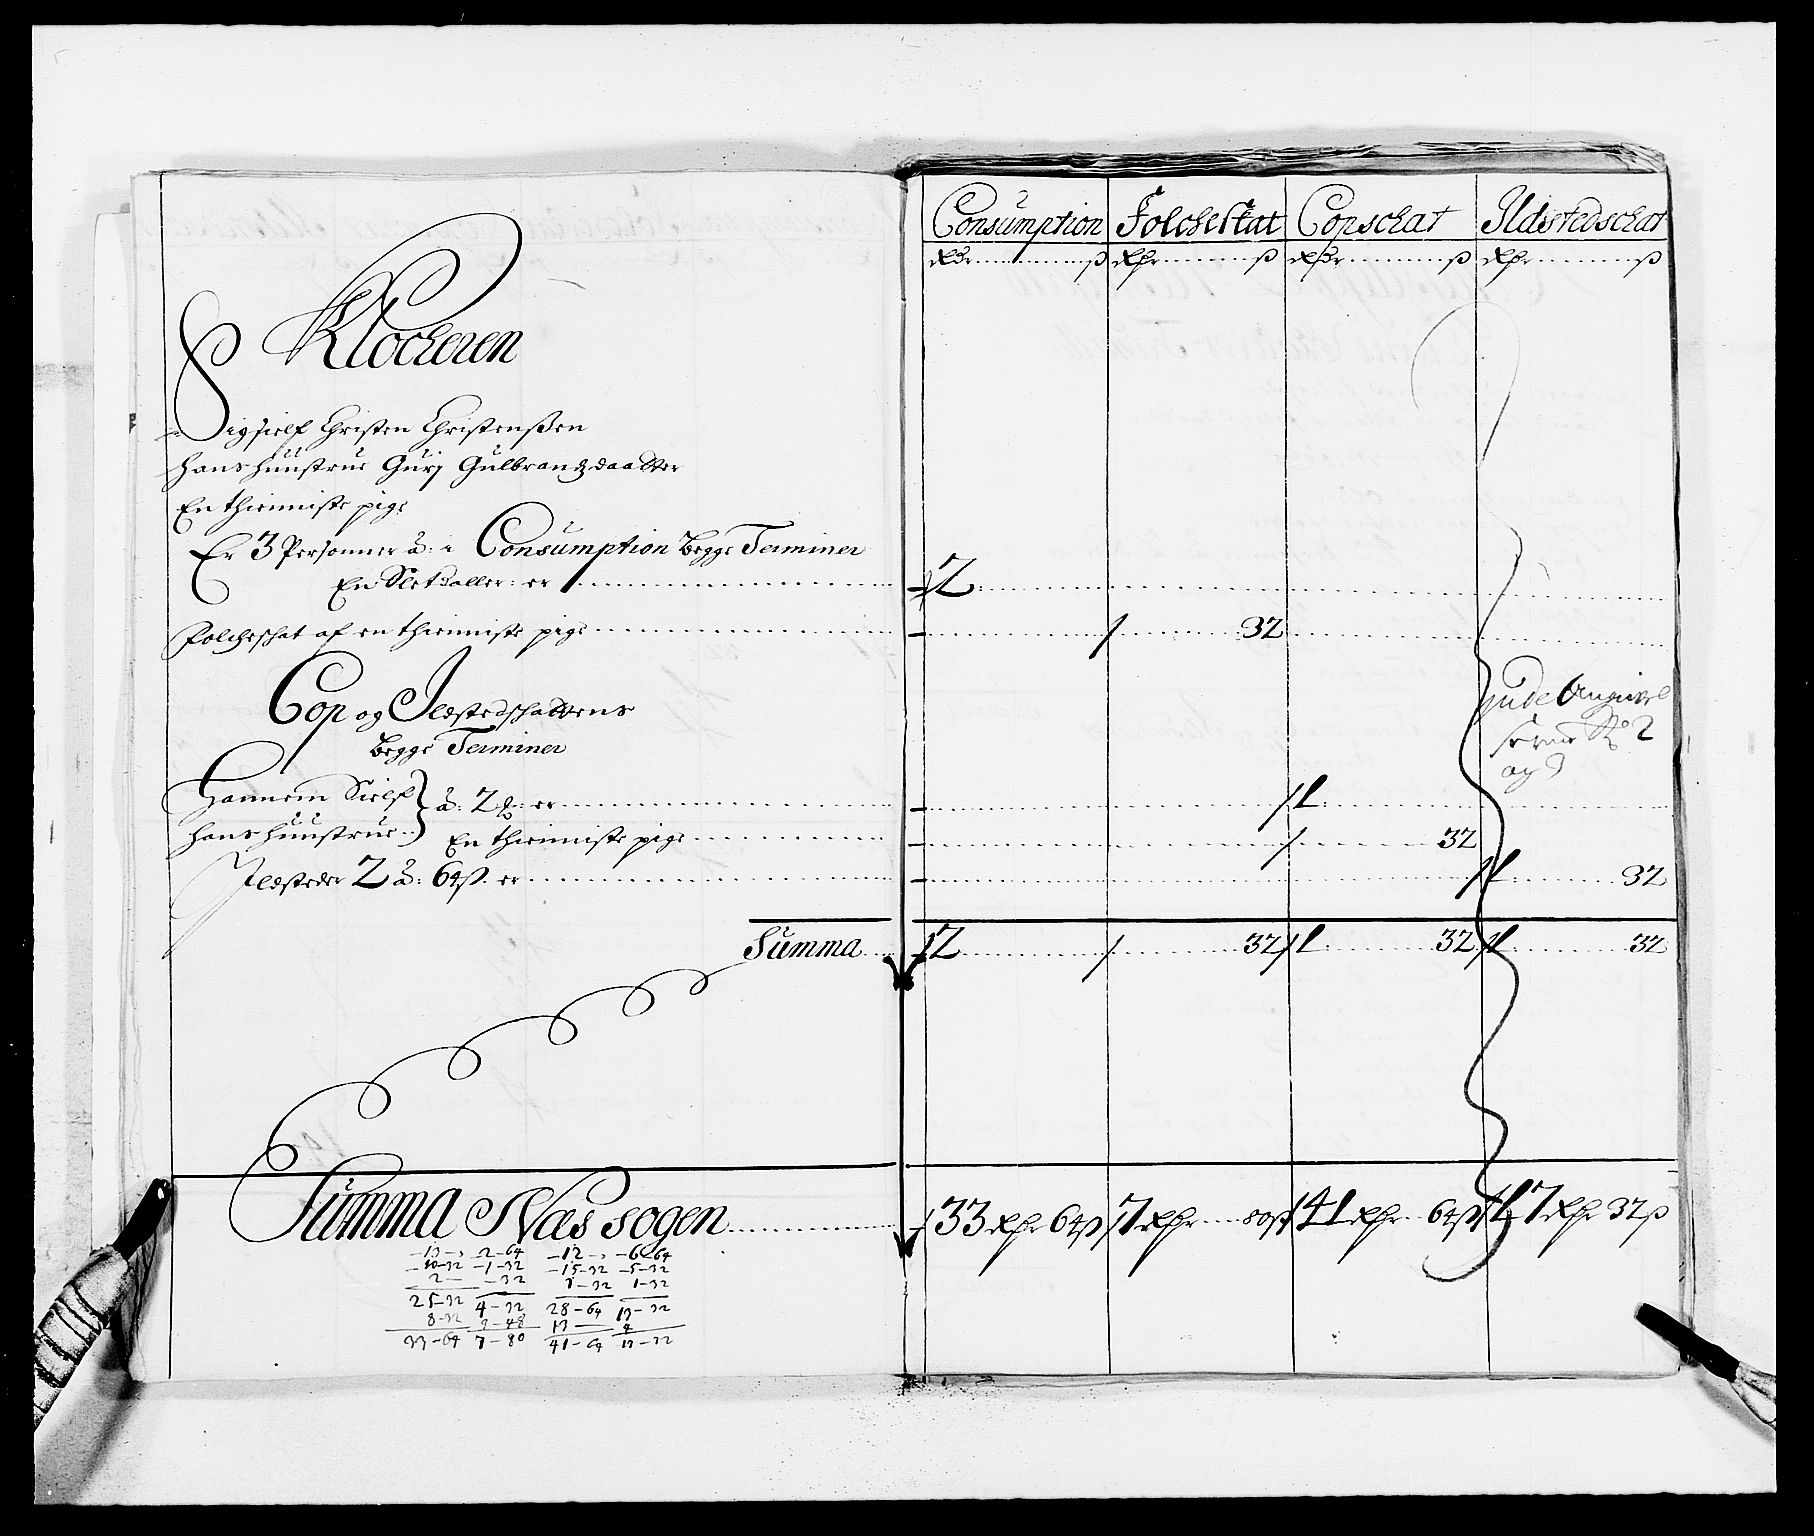 Consumption Folcheskat Copschat Ildstedschat
Rdr ß Rdr ß Rdr ß Rdr ß
Klocheren
Sig sielf Christen Christenßen
hans huustrue Gurj Gulbrandzdaatter
En thienniste pige
Er 3 Personner å: i Consumption begge Terminer
En Sletdaller: er 2
Folcheschat af en thienniste pige 32
Cop og Ildstedschattens
begge Terminer
inde
No 2
og 3
Hannem Sielf
hans huustrue } å: 2 er 1
En thienniste pige 32
Ildsteder 2 å: 64ß er 1 32
Summa 2 32 1 32 1 32
Summa Næs sogen 33 Rdr 64ß 7 Rdr 80ß 41 Rdr 64ß 17 Rdr 32ß
13 - 2-64 -12 - -6-64
-10-32 -1-32 -15-32 -5-32
2 - -32 1-32 1-32
25-32 4-32 28-64 13-32
8-32 3-48 13 - 4
33-64 7-80 41-64 17-32